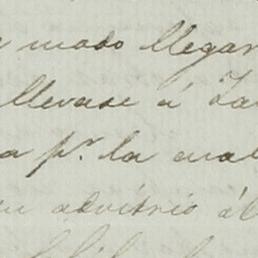 modo llegar
llevase á
a pr. la cual
advitrio